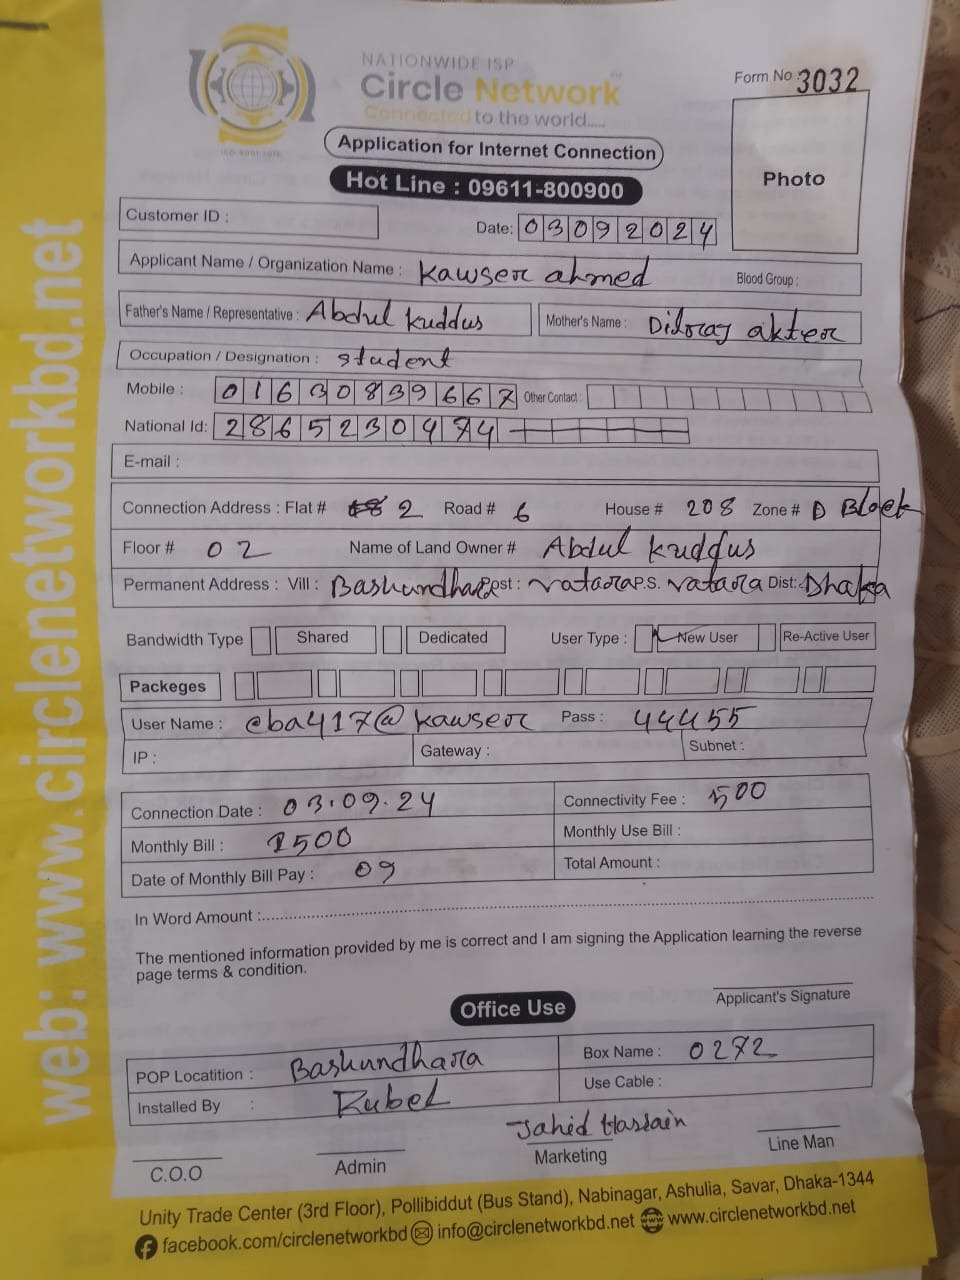 NATIONWIDE ISP
Circle Network
Connected to the world.....
Form No : 3032
Application for Internet Connection
Hot Line : 09611-800900
Photo
Customer ID :
Date: 03092024
Applicant Name / Organization Name : Kawser ahmed Blood Group :
Father's Name / Representative : Abdul kuddus Mother's Name : Diloraj akter
Occupation / Designation : student
Mobile : 01630839667 Other Contact :
National Id: 2865230474
E-mail :
Connection Address : Flat # 2 Road # 6 House # 208 Zone # D Block
Floor # 02 Name of Land Owner # Abdul kuddus
Permanent Address : Vill : Bashundhara Post : vatara P.S. vatara Dist: Dhaka
Bandwidth Type Shared Dedicated User Type : New User Re-Active User
Packeges
User Name : cba417@kawser Pass : 44455
IP : Gateway : Subnet :
Connection Date : 03.09.24 Connectivity Fee : 1500
Monthly Bill : 1500 Monthly Use Bill :
Date of Monthly Bill Pay : 09 Total Amount :
In Word Amount :
The mentioned information provided by me is correct and I am signing the Application learning the reverse
page terms & condition.
Applicant's Signature
Office Use
POP Locatition : Bashundhara Box Name : 0272
Installed By : Rubel Use Cable :
Jahid Hassain
C.O.O Admin Marketing Line Man
Unity Trade Center (3rd Floor), Pollibiddut (Bus Stand), Nabinagar, Ashulia, Savar, Dhaka-1344
facebook.com/circlenetworkbd info@circlenetworkbd.net www.circlenetworkbd.net
web: www.circlenetworkbd.net